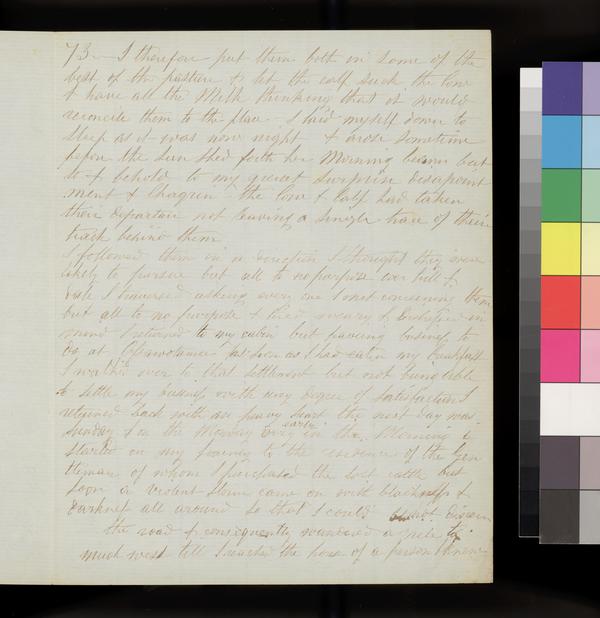 73 - I therefore put them both in some of the
best of the pasture & let the calf suck the Cow
& have all the Milk thinking that it would
reconcile them to the place - I laid myself down to
sleep as it was now night & arose sometime
before the Sun shed forth her Morning beams but
lo & behold to my great surprise disapoint
ment & Chagrin - the Cow & Calf had taken
their departure not leaving a single trace of their
track behind them
I followed them in a direction I thought they were
likely to pursue but all to no purpose over hill &
dale I traversed asking every one I met concerning them
but all to no purpose & tired weary & in
mind I returned to my cabin but having business to
do at Osawotamie as soon as I had eaten my breakfast
I walked over to that settlement but not being able
to settle my business with any degree of satisfaction I
returned back with an heavy heart the next day was
Sunday & on the Monday very early in the Morning I
started on my journey to the residence of the Gen
tleman of whom I purchased the lost cattle but
soon a violent storm came on with blackness &
darkness all around so that I could not discern
the road & consequently wandered a great
much west till I reached the house of a person I knew